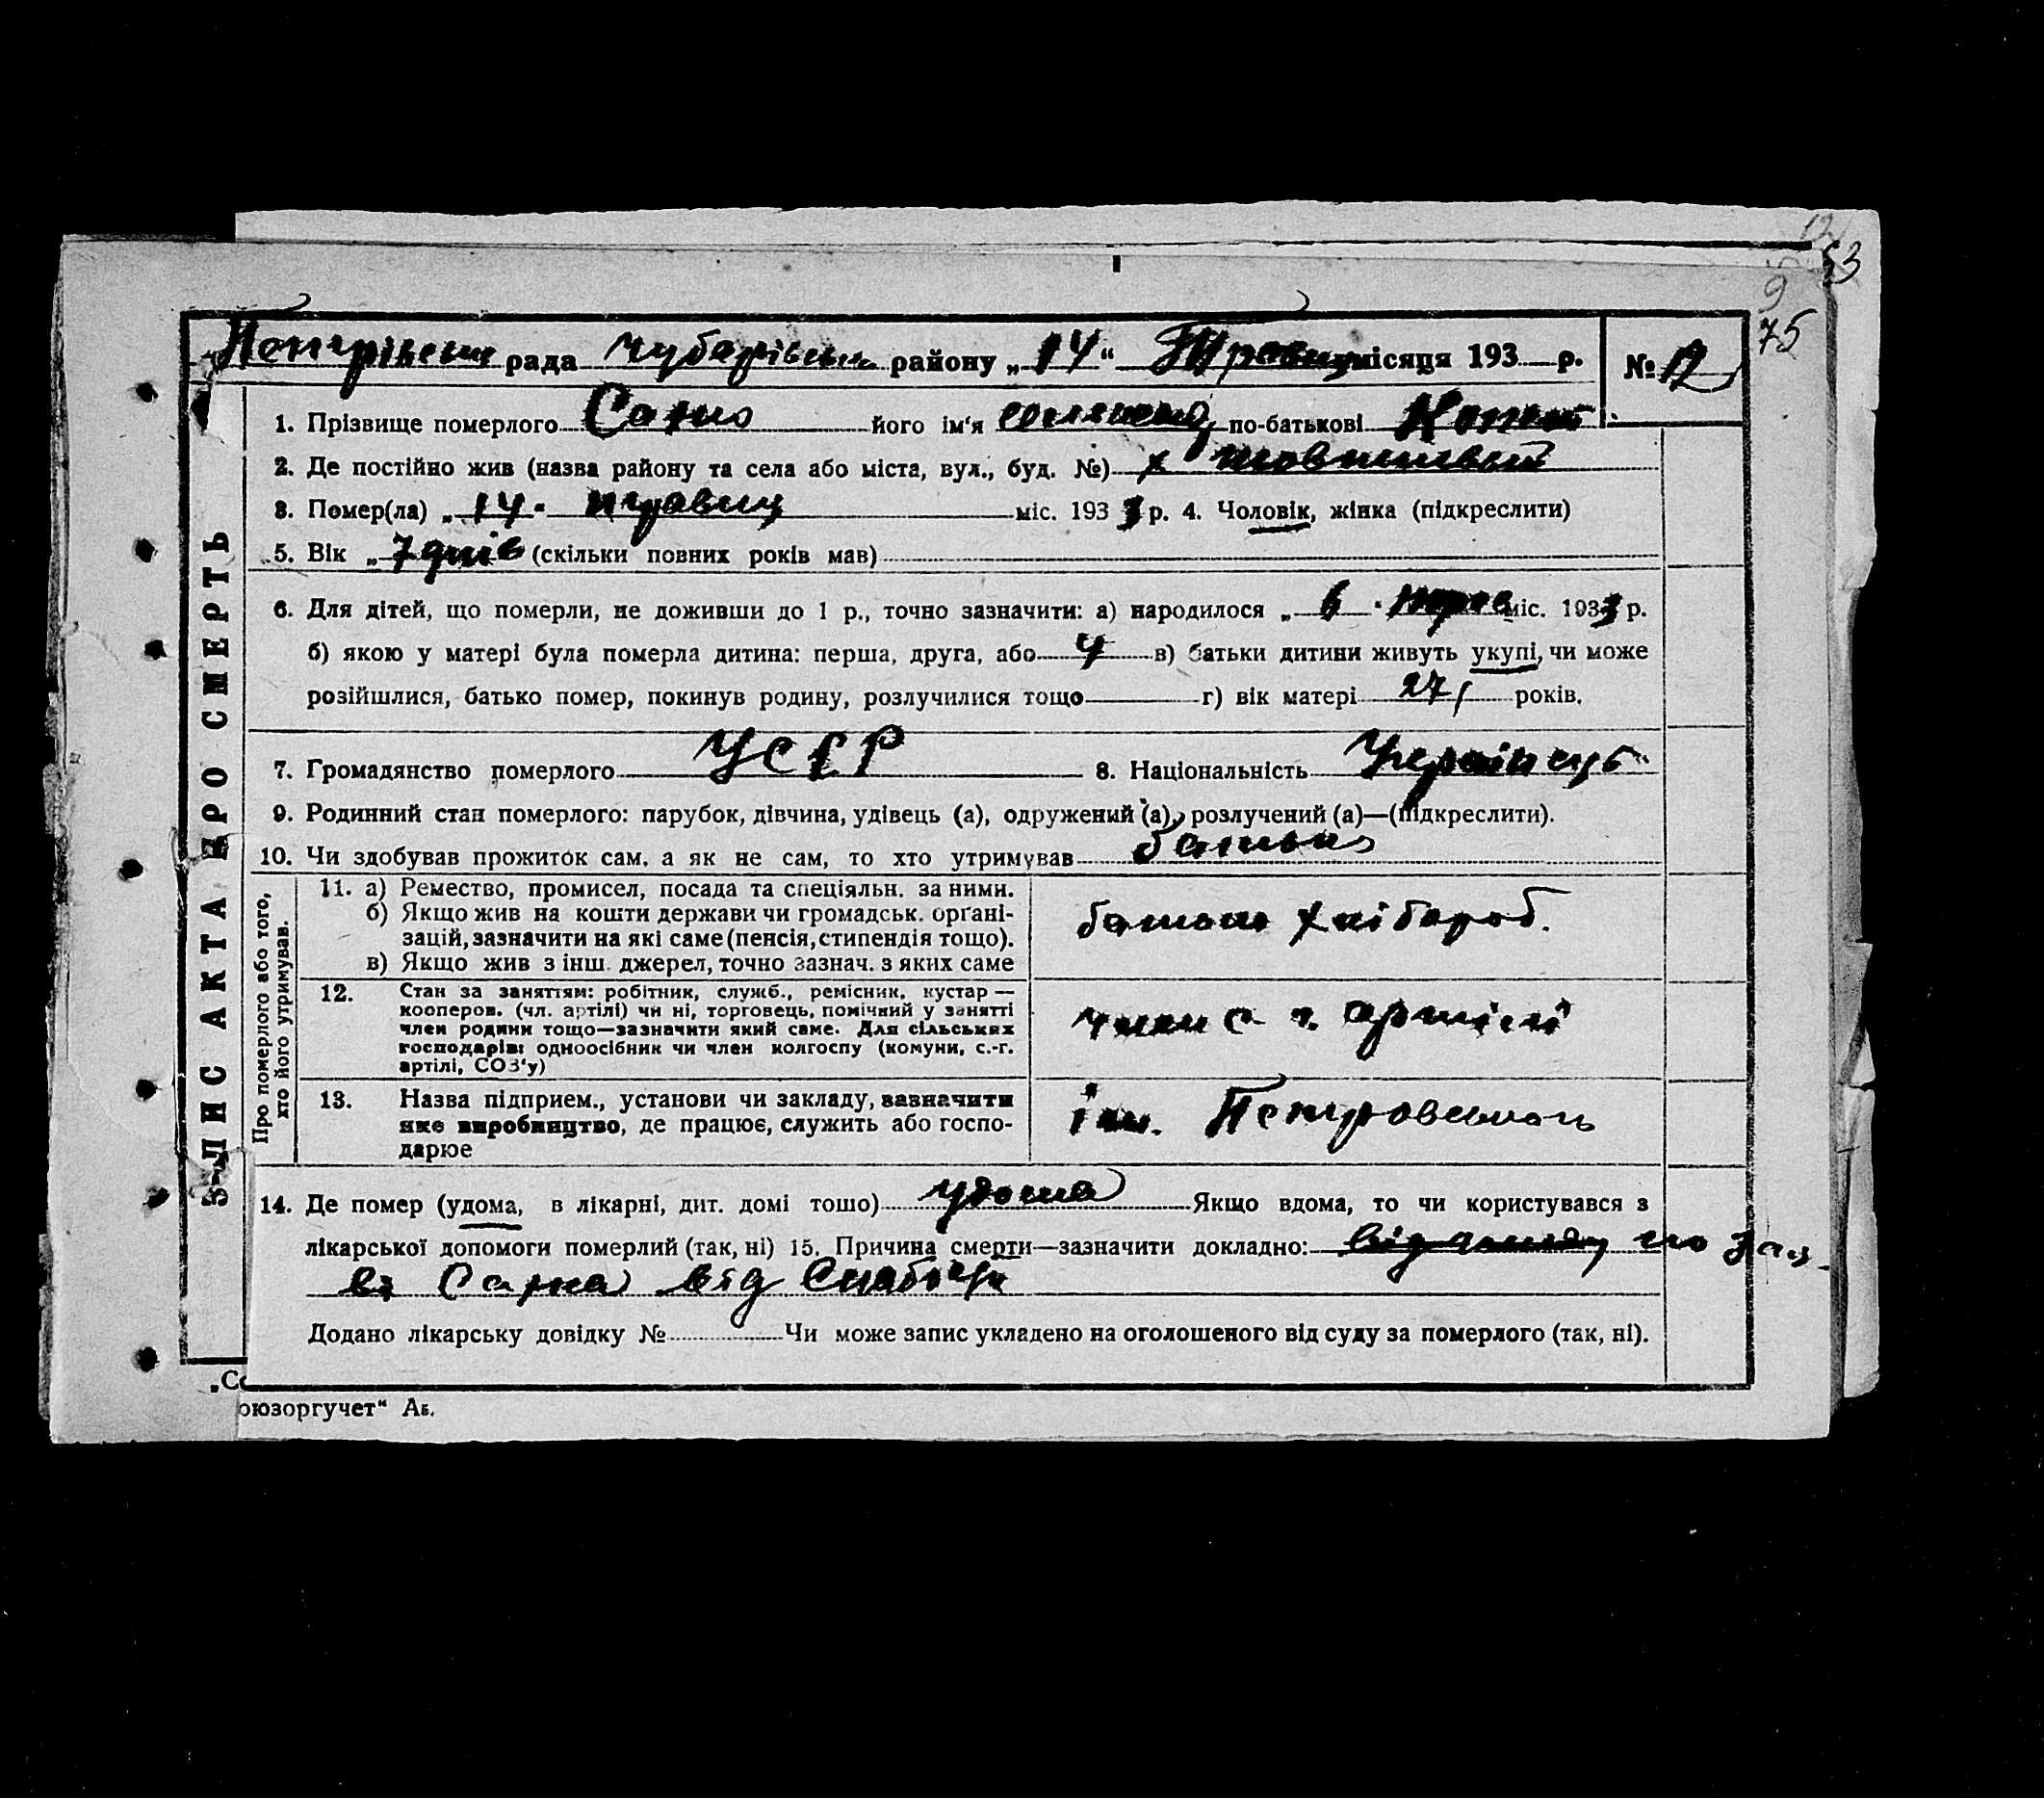 53
9
75
Петрівська рада Чубарівськ району „14“ Травня місяця 193 р. № 12
1. Прізвище померлого його ім'я по-батькові
2. Де постійно жив (назва району та села або міста, вул., буд. №) х
3. Помер(ла) „14“ травня міс. 1933 р. 4. Чоловік, жінка (підкреслити)
5. Вік „7 днів (скільки повних років мав)
6. Для дітей, що померли, не доживши до 1 р., точно зазначити: а) народилося „6“ трав міс. 1933 р.
б) якою у матері була померла дитина: перша, друга, або 4 в) батьки дитини живуть укупі, чи може
розійшлися, батько помер, покинув родину, розлучилися тощо г) вік матері 27 років.
7. Громадянство померлого УСРР 8. Національність Українець
9. Родинний стан померлого: парубок, дівчина, удівець (а), одружений (а), розлучений (а)—(підкреслити).
10. Чи здобував прожиток сам, а як не сам, то хто утримував батько
ЗАПИС АКТА ПРО СМЕРТЬ
Про померлого або того, хто його утримував.
11. а) Ремество, промисел, посада та спеціяльн. за ними.
б) Якщо жив на кошти держави чи громадськ. орґані-
зацій, зазначити на які саме (пенсія, стипендія тощо).
в) Якщо жив з інш. джерел, точно зазнач. з яких саме
батько хлібороб.
12. Стан за заняттям: робітник, служб., ремісник, кустар —
кооперов. (чл. артілі) чи ні, торговець, помічний у занятті
член родини тощо—зазначити який саме. Для сільських
господарів: одноосібник чи член колгоспу (комуни, с.-г.
артілі, СОЗ'у)
член с. г. артілі
13. Назва підприєм., установи чи закладу, зазначити
яке виробництво, де працює, служить або госпо-
дарює
ім. Петровського
14. Де помер (удома, в лікарні, дит. домі тощо) удома Якщо вдома, то чи користувався з
лікарської допомоги померлий (так, ні) 15. Причина смерти—зазначити докладно: по
від
Додано лікарську довідку № Чи може запис укладено на оголошеного від суду за померлого (так, ні).
„Со
оюзоргучет“